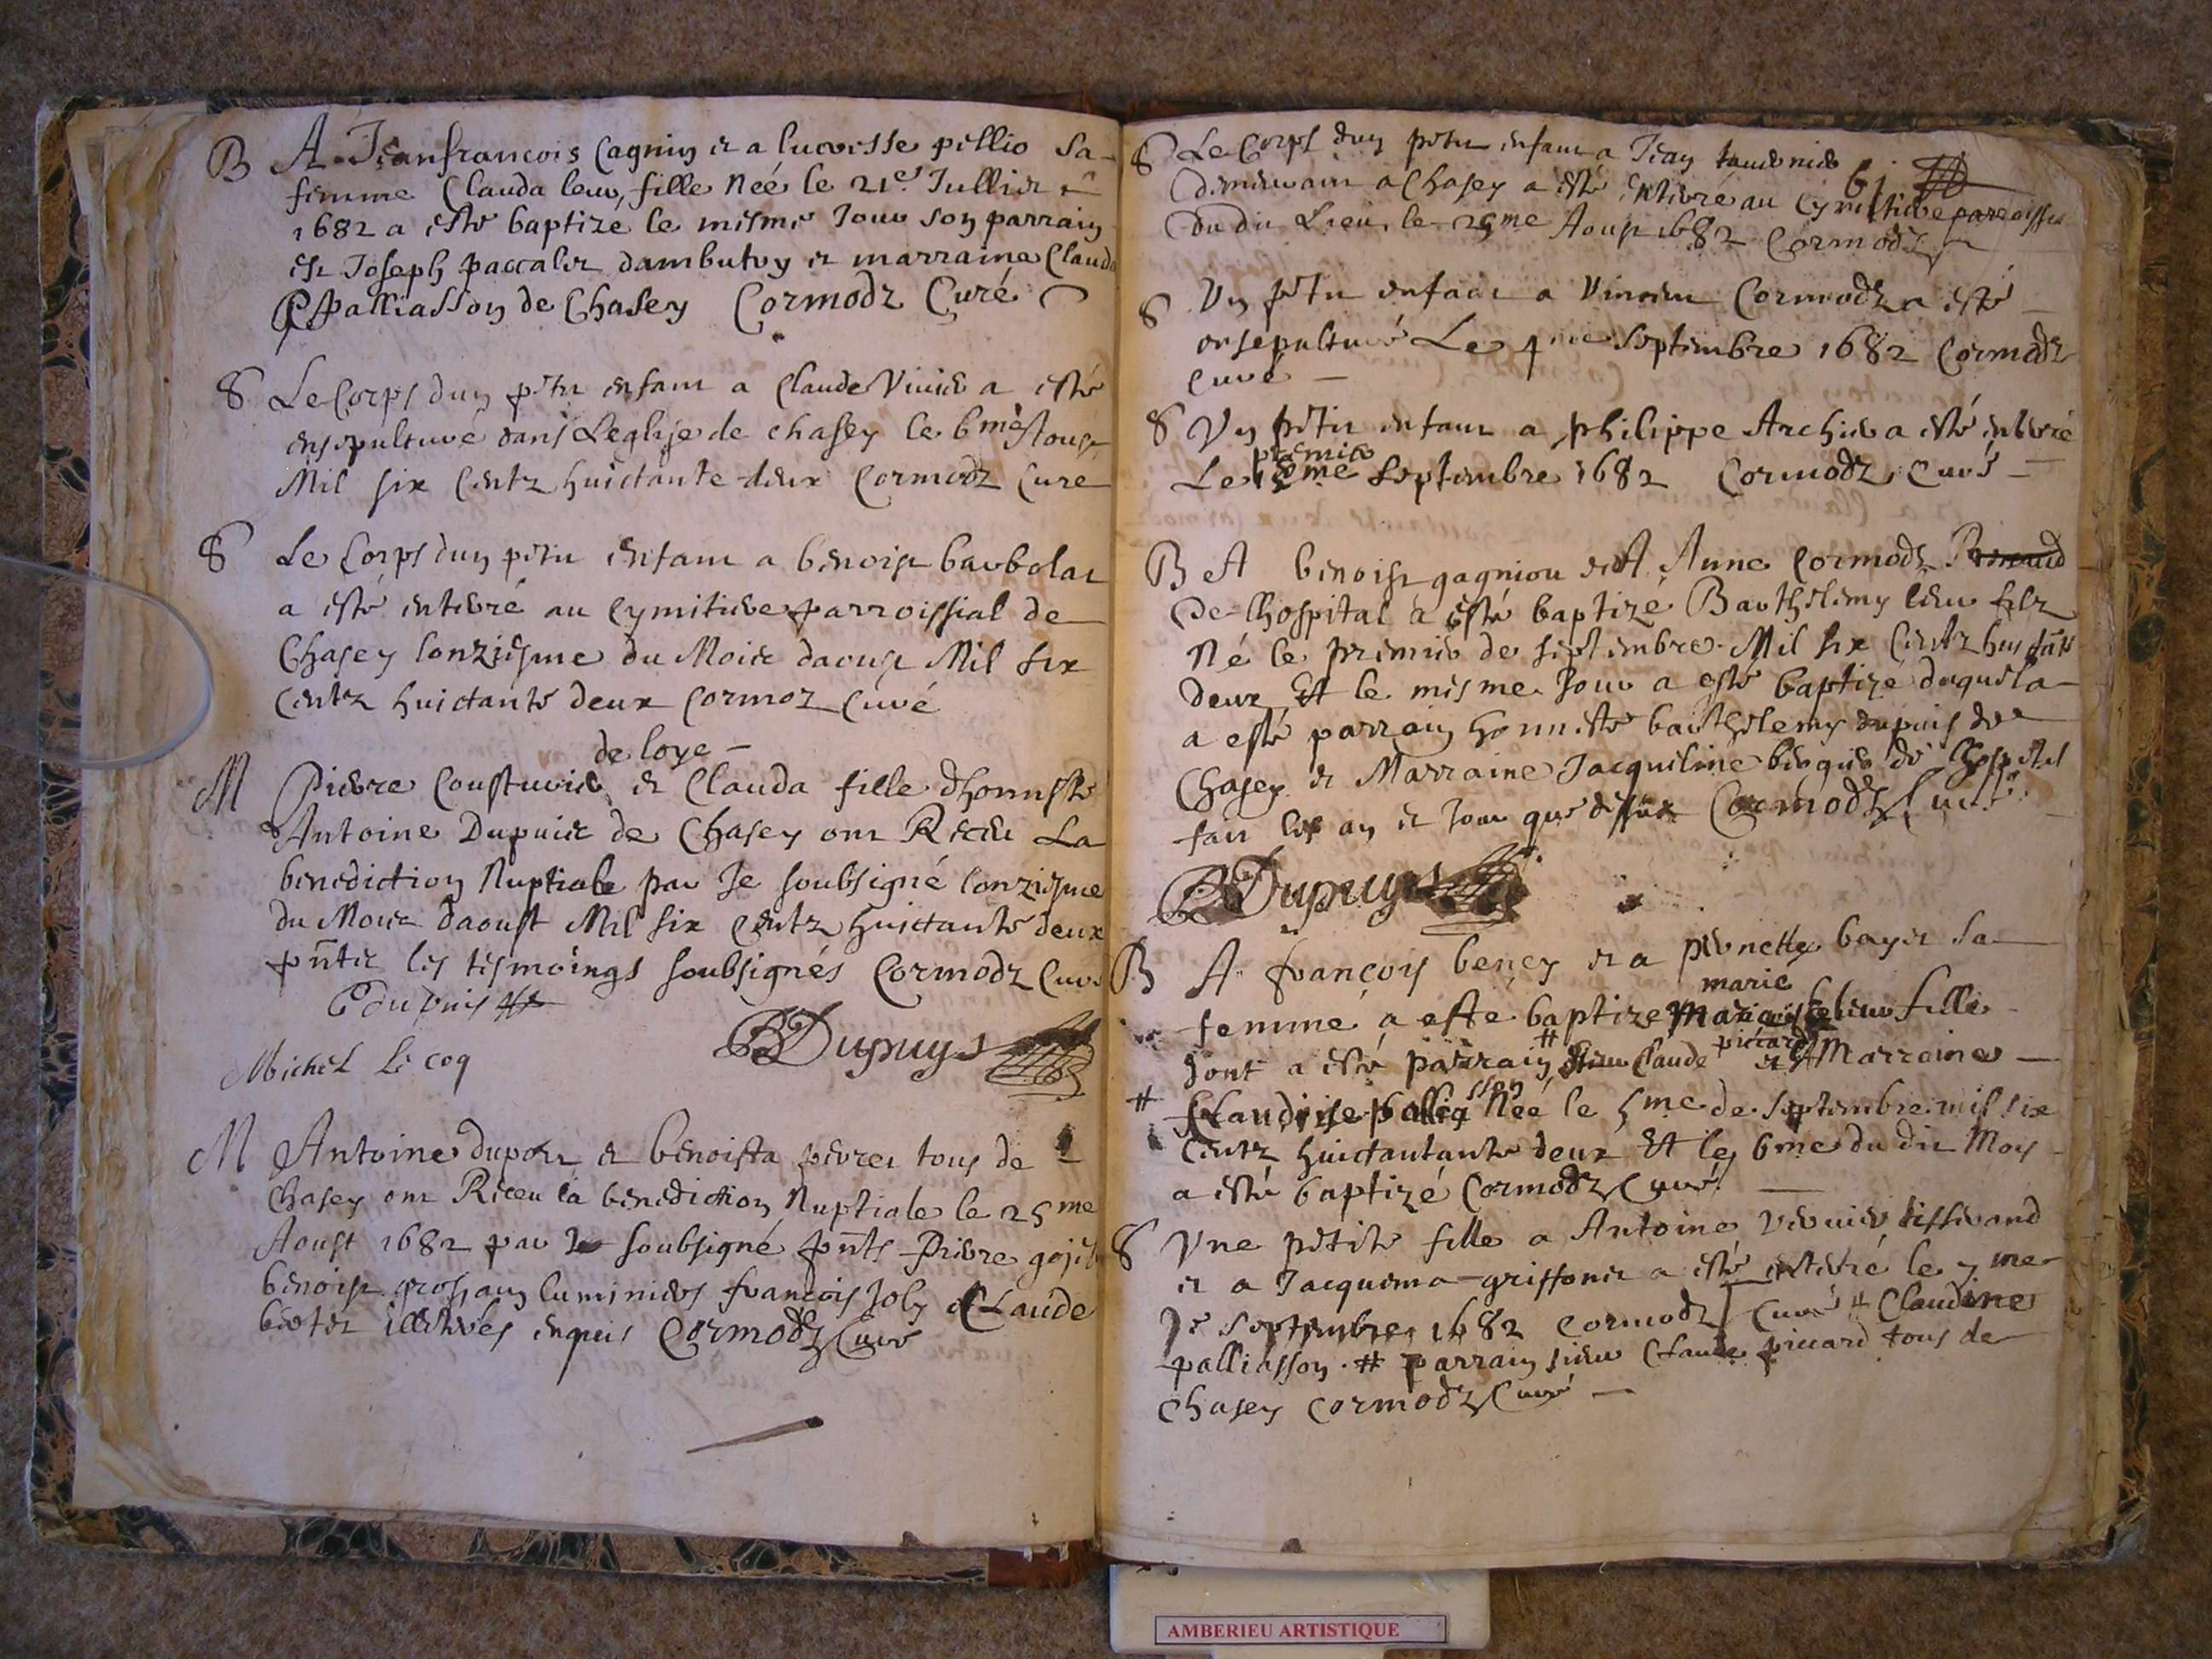 B A Jeanfrancois Cagnin et a lucresse pellio sa
femme Clauda leur fille Neé le 21e Jullier
1682 a esté baptize le mesme Jour son parrain
est Joseph paccalet dambutry et marraine Clauda
Palliasson de Chasey Cormodz Curé
S Le Corps dun petit enfant a Claude Vivier a esté
ensepulturé dans Leglise de chasey le 6me Aoust
Mil six Centz huictante deux Cormodz Curé
S Le Corps dun petit enfant a benoist barbolat
a esté enterré au Cymitiere parroissial de
Chasey lonziesme du Moir daoust Mil six
Centz huictante deux Cormoz Curé
de loye
M Pierre Cousturier et Clauda fille dhonneste
Antoine Dupuir de Chasey ont Receu La
benediction Nuptiale par Je soubsigné lonziesme
du Moir daoust Mil six Centz huictante deux
pnter les tesmoings soubsignés Cormodz Curé
E dupuis
BDupuys
Michel Le coq
M Antoine dupont et benoista perret tous de
Chasey ont Receu la benediction Nuptiale le 25me
Aoust 1682 par Je soubsigné pnts Pierre
benoist luminiers francois Joly Claude
illiterés enquis Cormodz Curé
S Le Corps dun petit enfant a Jean
61
demeurant a Chasey a esté enterré au Cymitiere parroissial
du dit Lieu le 25me Aoust 1682 Cormodz
S Un petit enfant a Vincent Cormodz a esté
ensepulturé Le 4me Septembre 1682 Cormodz
Curé
S Un petit enfant a philippe Archier a esté enterré
premier
Le Septembre 1682 Cormodz Curé
B A benoist gagniou et A Anne Cormodz
de lhospital a esté baptizé Barthelemy leur filz
Né le premier de septembre Mil six Centz huictante
deux Et le mesme Jour a esté baptize duquel a
a esté parrain honneste barthelemy dupuis de
Chasey et Marraine Jacqueline de lhospital
fait les an et Jour que dessus Cormodz Curé
BDupuys
B A françois bency et a pernette bayet sa
marie
femme a este baptize leur fille
piccard
dont a esté parrain # sieur Claude et Marraine
sson
# Claudine pallia Neé le 5me de Septembre mil six
Centz huictantante deux Et le 6me du dit Moy
a esté baptizé Cormodz Curé
S Une petite fille a Antoine tisserand
et a Jacquema griffonet a esté enterré le 7me
de Septembre 1682 Cormodz Curé # Claudine
palliasson # parrain sieur Claude piccard tous de
Chasey Cormodz Curé
AMBERIEU ARTISTIQUE